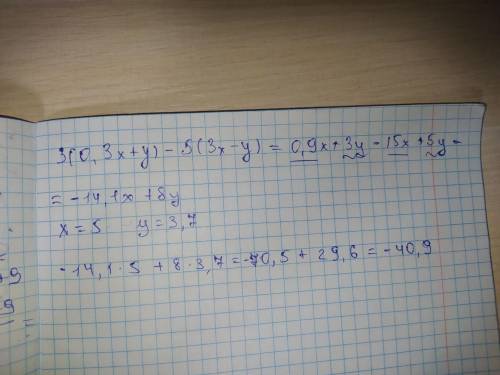 3(0,3x+y)-5(3x-y)=0,9x+3y-15x+5y=
=-14,1x+8y
x=5 y=3,7
-14,1·5+8·3,7=-70,5+29,6=-40,9
+9
9
=